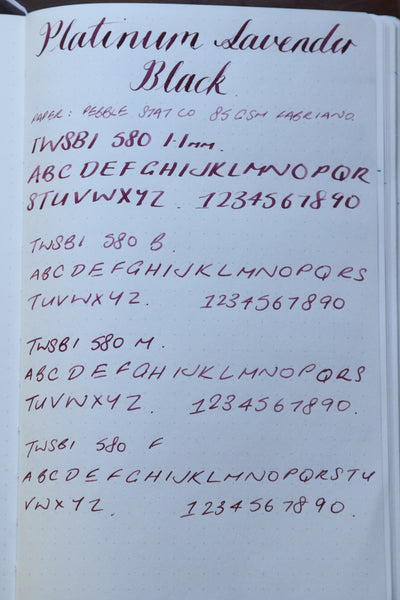 Platinum Lavender
Black
PAPER: PEBBLE STAT CO 85GSM FABRIANO.
TWSBI 580 1.1mm.
ABCDEFGHIJKLMNOPQR
STUVWXYZ. 1234567890
TWSBI 580 B.
ABCDEFGHIJKLMNOPQRS
TUVWXYZ. 1234567890
TWSBI 580 M.
ABCDEFGHIJKLMNOPQRS
TUVWXYZ. 1234567890.
TWSBI 580 F
ABCDEFGHIJKLMNOPQRSTU
VWXYZ. 1234567890.